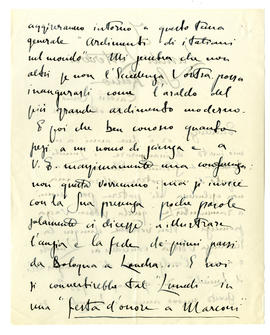 aggireranno intorno a questo tema
generale "Ardimenti di italiani
nel mondo" Mi sembra che non
altri se non l'Eccellenza Vostra possa
inaugurarli come l'araldo del
più grande ardimento moderno.
E poi che ben conosco quanto
pesi a un uomo di scienza e a
V. E. massimamente una conferenza
non questa vorremmo ma si invece
con la Sua presenza poche parole
solamente ci dicesse a illustrare
l'ansia e la fede dei primi passi
da Bologna a Londra... E noi
si convertirebbe tal "Lunedì" in
una "festa d'onore a Marconi"